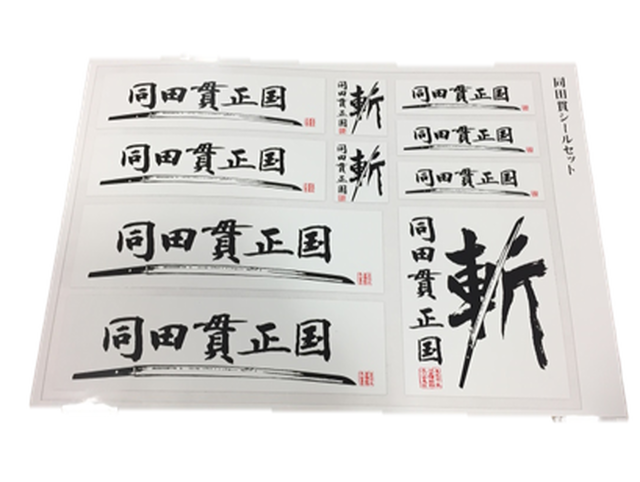 同田貫シールセット
同田貫正国
同田貫正国
同田貫正国
同田貫正国
斬
同田貫正国
斬
同田貫正国
同田貫正国
同田貫正国
同田貫正国
斬
同田貫正国